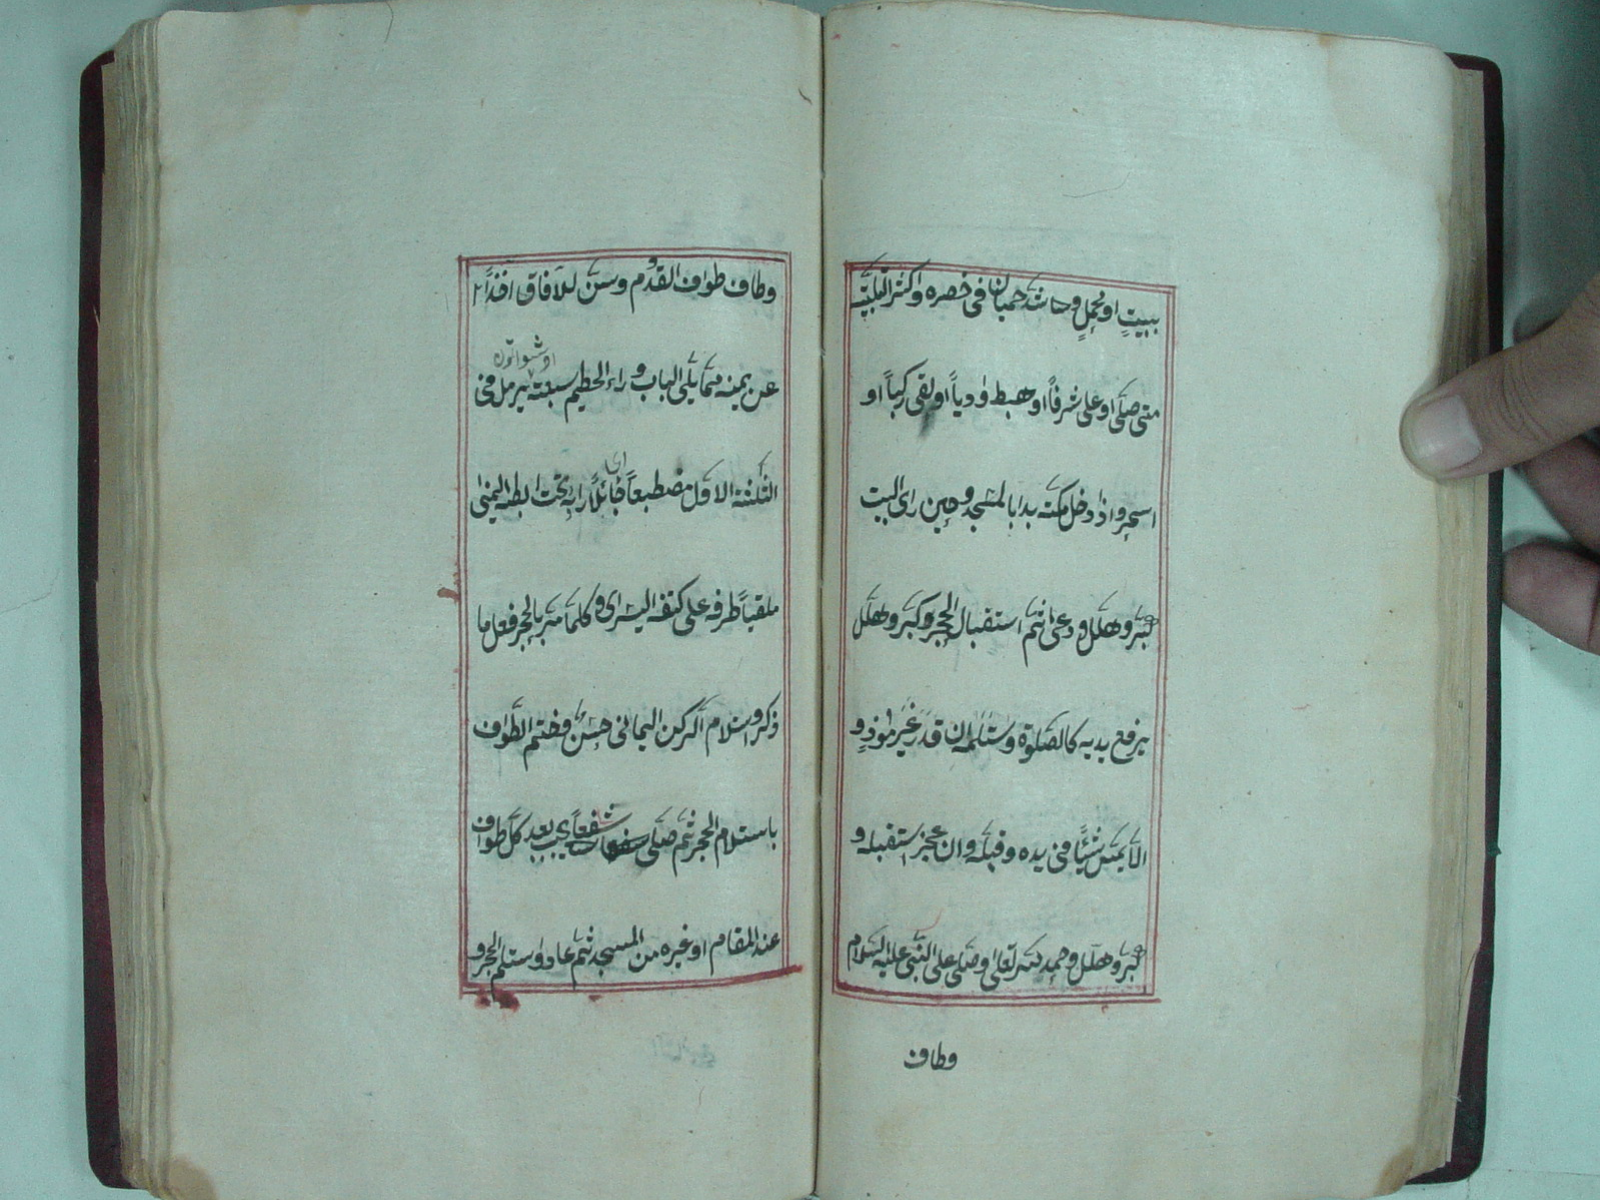 ببيتٍ او بمحملٍ وحاشد هميان فى خصره واكثر التلبيّة
متى صلّى او على شرفاً او هبط وادياً او لقى ركباً او
اسحر واذا دخل مكّة بدا بالمسجد وحين راى البيت
كبّر وهلّل ودعى ثمّ استقبال الحجر وكبّر وهلّل
يرفع يديه كالصّلوة واستلمه ان قدر غير موذٍ و
الّا يمسّ شيئًا فى يده وقبّله وان عجز استقبله و
كبّر وهلّل وحمد اللّه تعالى وصلّى على النّبى عليه السّلام
وطاف
وطاف طواف القدوم وسنّ للآفاق اخذاً
عن يمينه ممّا يلى الباب وراء الحطيم سبعة يرمل فى
الثّلثة الاوّل مضطبعاً جاعلاً رداءه تحت ابطه اليمنى
اى
ملقياً طرفه على كتفه اليسرى وكلّما مرّ بالحجر فعل ما
ذكر واستلام الركن اليمانى حسن وختم الطّواف
باستلام الحجر ثمّ صلّى شفعاً يجب بعد كلّ طواف
عند المقام او غيره من المسجد ثمّ عاد واستلم الحجر و